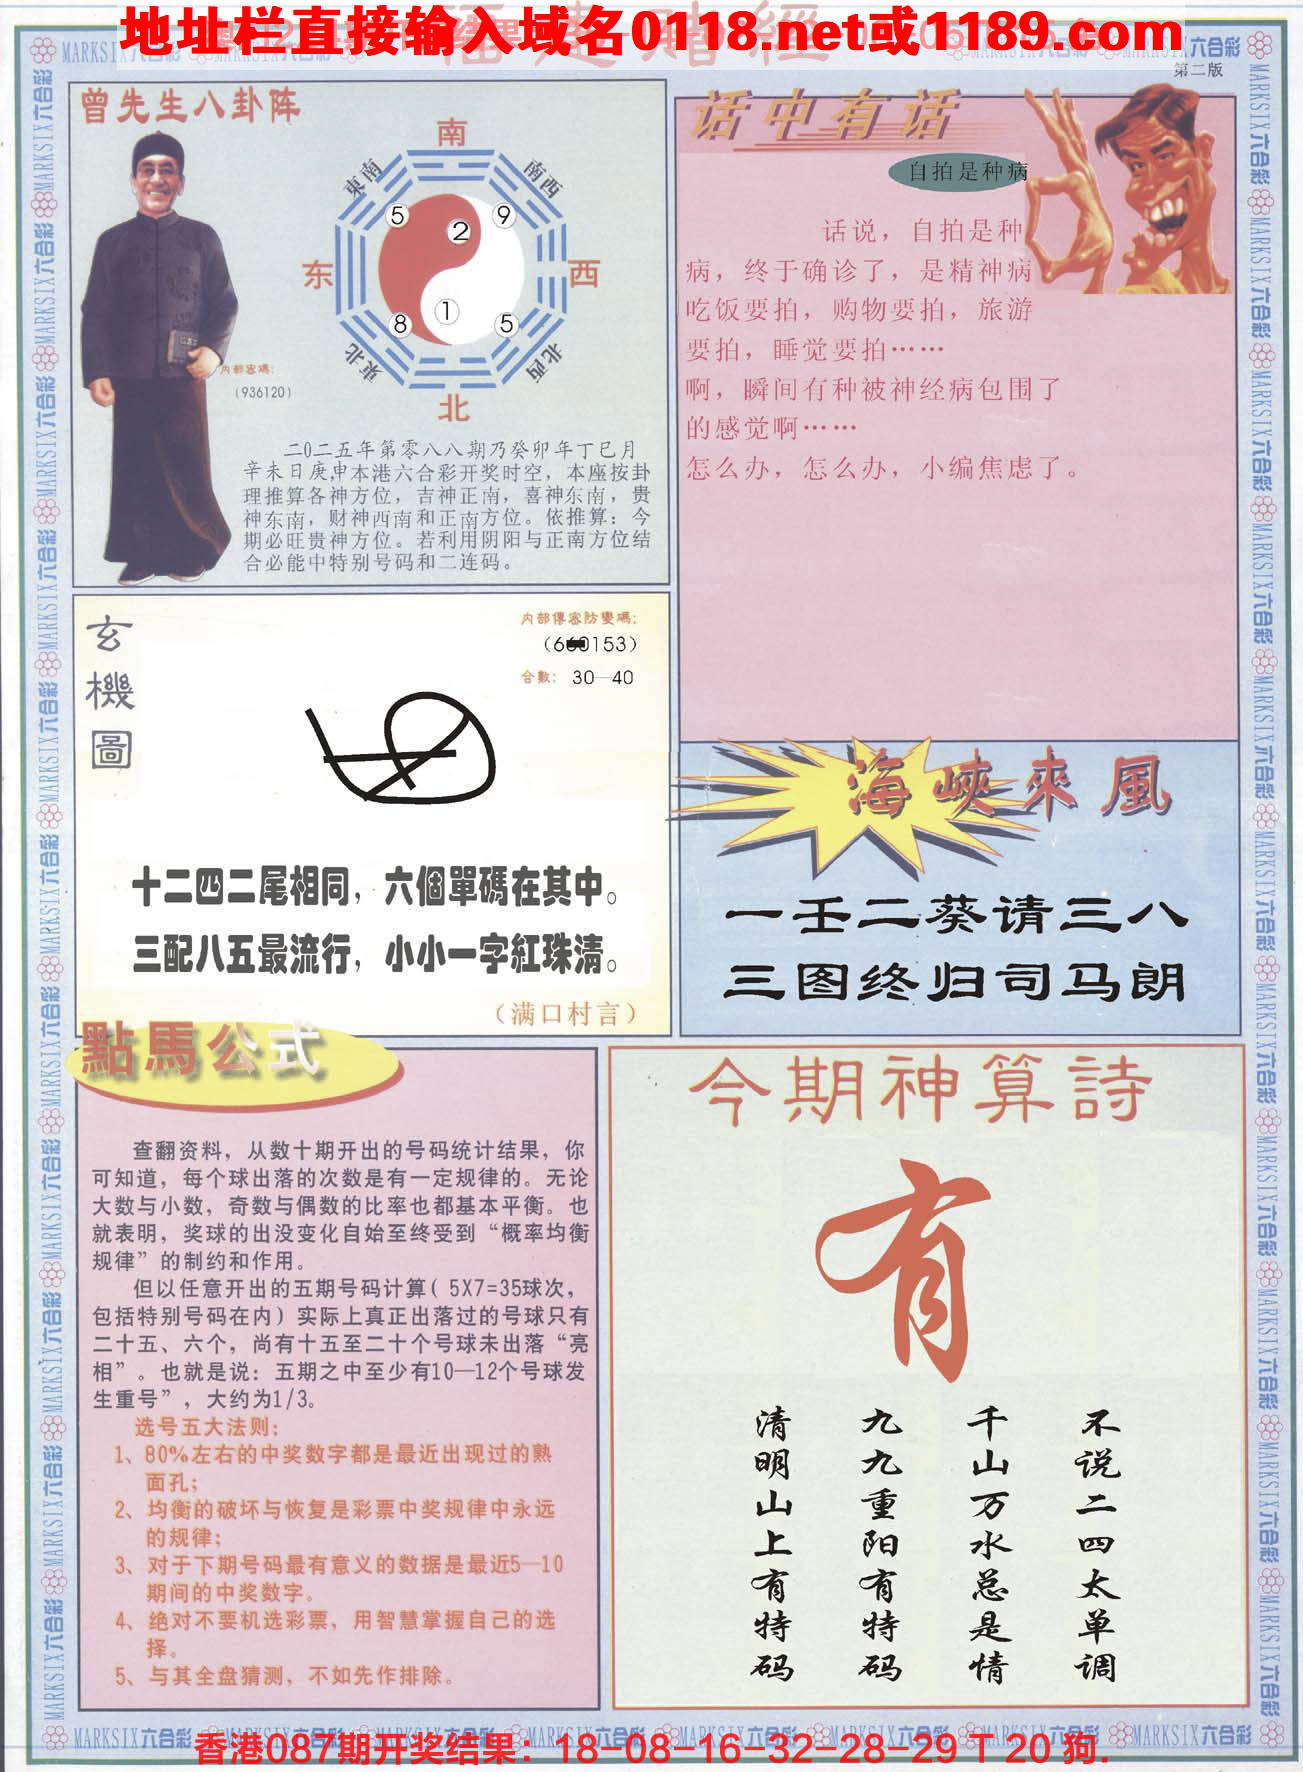 地址栏直接输入域名0118.net或1189.com
第二版
曾先生八卦阵
南
東南
南西
5
9
2
东
西
1
8
5
東北
北西
北
内部密碼:
(936120)
二〇二五年第零八八期乃癸卯年丁巳月
辛未日庚申本港六合彩开奖时空，本座按卦
理推算各神方位，吉神正南，喜神东南，贵
神东南，财神西南和正南方位。依推算：今
期必旺贵神方位。若利用阴阳与正南方位结
合必能中特别号码和二连码。
话中有话
自拍是种病
话说，自拍是种
病，终于确诊了，是精神病
吃饭要拍，购物要拍，旅游
要拍，睡觉要拍……
啊，瞬间有种被神经病包围了
的感觉啊……
怎么办，怎么办，小编焦虑了。
玄機圖
内部傳密防變碼:
0153)
合數: 30—40
十二四二尾相同，六個單碼在其中。
三配八五最流行，小小一字紅珠清。
（满口村言）
海峽來風
一壬二葵请三八
三图终归司马朗
點馬公式
查翻资料，从数十期开出的号码统计结果，你
可知道，每个球出落的次数是有一定规律的。无论
大数与小数，奇数与偶数的比率也都基本平衡。也
就表明，奖球的出没变化自始至终受到“概率均衡
规律”的制约和作用。
但以任意开出的五期号码计算( 5X7=35球次，
包括特别号码在内）实际上真正出落过的号球只有
二十五、六个，尚有十五至二十个号球未出落“亮
相”。也就是说：五期之中至少有10—12个号球发
生重号”，大约为1/3。
选号五大法则：
1、80%左右的中奖数字都是最近出现过的熟
面孔；
2、均衡的破坏与恢复是彩票中奖规律中永远
的规律；
3、对于下期号码最有意义的数据是最近5—10
期间的中奖数字。
4、绝对不要机选彩票，用智慧掌握自己的选
择。
5、与其全盘猜测，不如先作排除。
今期神算詩
有
不说二四太单调
千山万水总是情
九九重阳有特码
清明山上有特码
MARKSIX六合彩
香港087期开奖结果：18-08-16-32-28-29 T 20 狗.